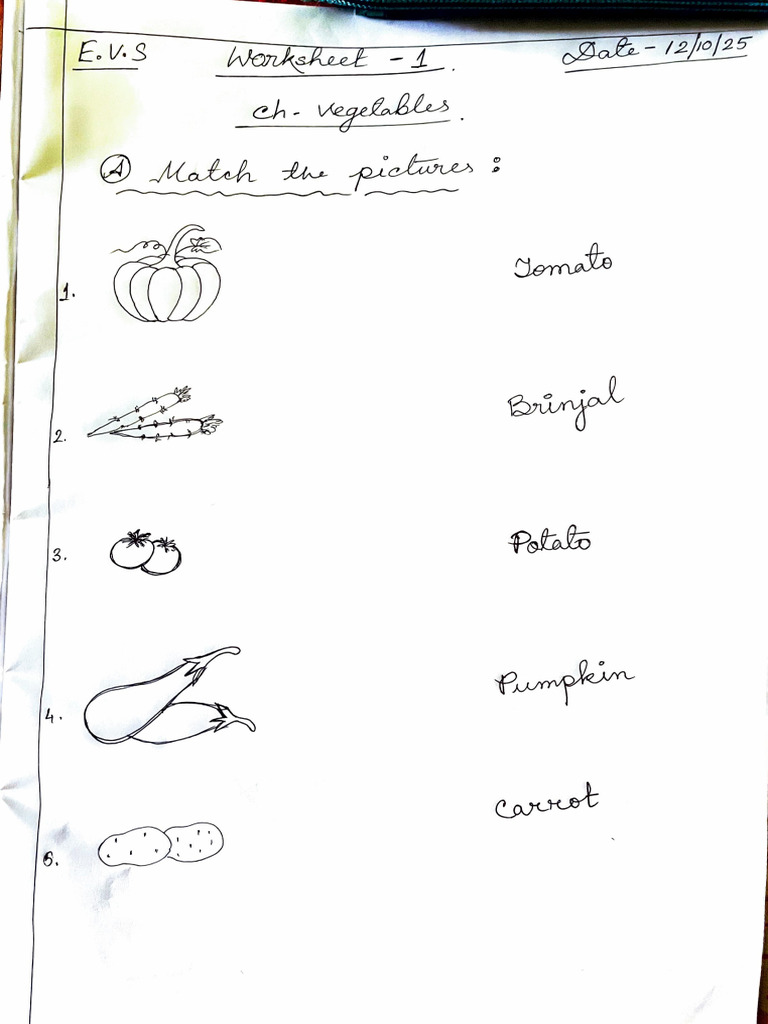 E.V.S Worksheet - 1. Date - 12/10/25
Ch - Vegetables.
A Match the pictures :
1. Tomato
2. Brinjal
3. Potato
4. Pumpkin
5. Carrot